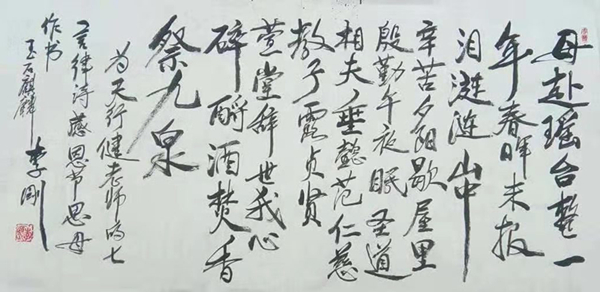 母赴瑶台整一
年春晖未报
泪涟涟山中
辛苦夕阳歇屋里
殷勤午夜眠圣道
相夫垂懿范仁慈
教子露贞贤
萱堂辞世我心
碎酹酒焚香
祭九泉
为天行健老师的七
言律诗感恩节思母
作书
玉石麒麟
李刚